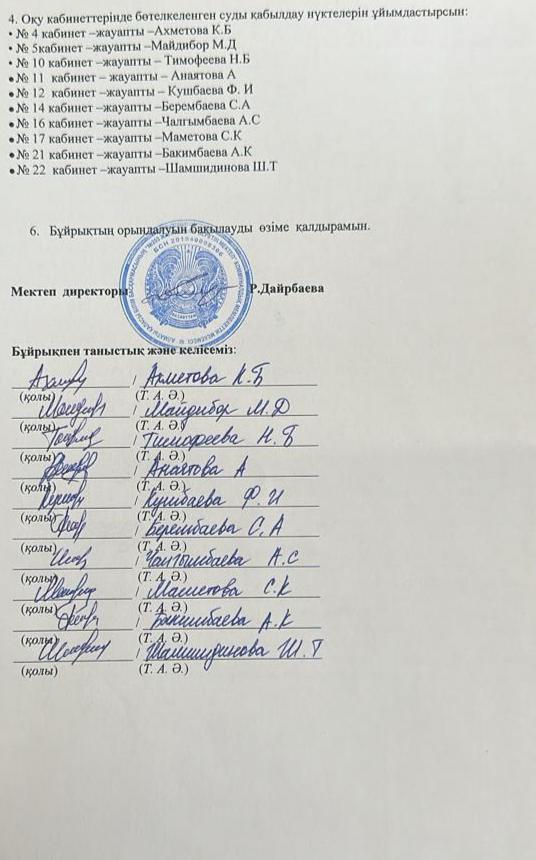 4. Оқу кабинеттерінде бөтелкеленген суды қабылдау нүктелерін ұйымдастырсын:
• № 4 кабинет –жауапты –Ахметова К.Б
• № 5кабинет –жауапты –Майдибор М.Д
• № 10 кабинет –жауапты – Тимофеева Н.Б
• № 11 кабинет – жауапты – Анаятова А
• № 12 кабинет –жауапты – Кушбаева Ф. И
• № 14 кабинет –жауапты –Берембаева С.А
• № 16 кабинет –жауапты –Чалгымбаева А.С
• № 17 кабинет –жауапты –Маметова С.К
• № 21 кабинет –жауапты –Бакимбаева А.К
• № 22 кабинет –жауапты –Шамшидинова Ш.Т
6. Бұйрықтың орындалуын бақылауды өзіме қалдырамын.
Мектеп директоры Р.Дайрбаева
Бұйрықпен таныстық және келісеміз:
/ Ахметова К.Б
(қолы) (Т. А. Ә.)
/ Майдибор М.Д
(қолы) (Т. А. Ә.)
/ Тимофеева Н.Б
(қолы) (Т. А. Ә.)
/ Анаятова А
(қолы) (Т. А. Ә.)
/ Кушбаева Ф.И
(қолы) (Т. А. Ә.)
/ Берембаева С,А
(қолы) (Т. А. Ә.)
/ Чалгымбаева А.С
(қолы) (Т. А. Ә.)
/ Маметова С.К
(қолы) (Т. А. Ә.)
/ Бакимбаева А.К
(қолы) (Т. А. Ә.)
/ Шамшидинова Ш.Т
(қолы) (Т. А. Ә.)